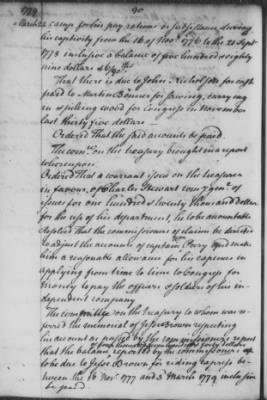 1779 90
March 22 camp for his pay rations & subsistence during
his captivity from the 16 of Novr. 1776 to the 21 Sept
1778 inclusive a balance of five hundred & eighty
nine dollars 36/90ths.
That there is due to John Nicholson for cash
paid to Martin Bonner for sawing, carrying
in & piling wood for Congress in November
last thirty five dollars
Ordered that the said accounts be paid.
The comee. on the treasury brought in a report
whereupon
Ordered that a warrant issue on the treasurer
in favour of Charles Stewart comy genl. of
issues for one hundred & twenty thousand dollars
for the use of his department, he to be accountable
Resolved That the commissioners of claims be directed
to adjust the accounts of captain Perry and make
him a reasonable allowance for his expences in
applying from time to time to Congress for
money to pay the officers & soldiers of his in-
dependent company
The committee on the treasury to whom was re
ferred the memorial of Jesse Brown respecting
his account as passed by the commissioners report
of four thousand
that the balance reported by the commissioners
to be due to Jesse Brown for riding express be-
tween the 16 Novr. 1777 and 3 March 1779 inclusive
be paid.